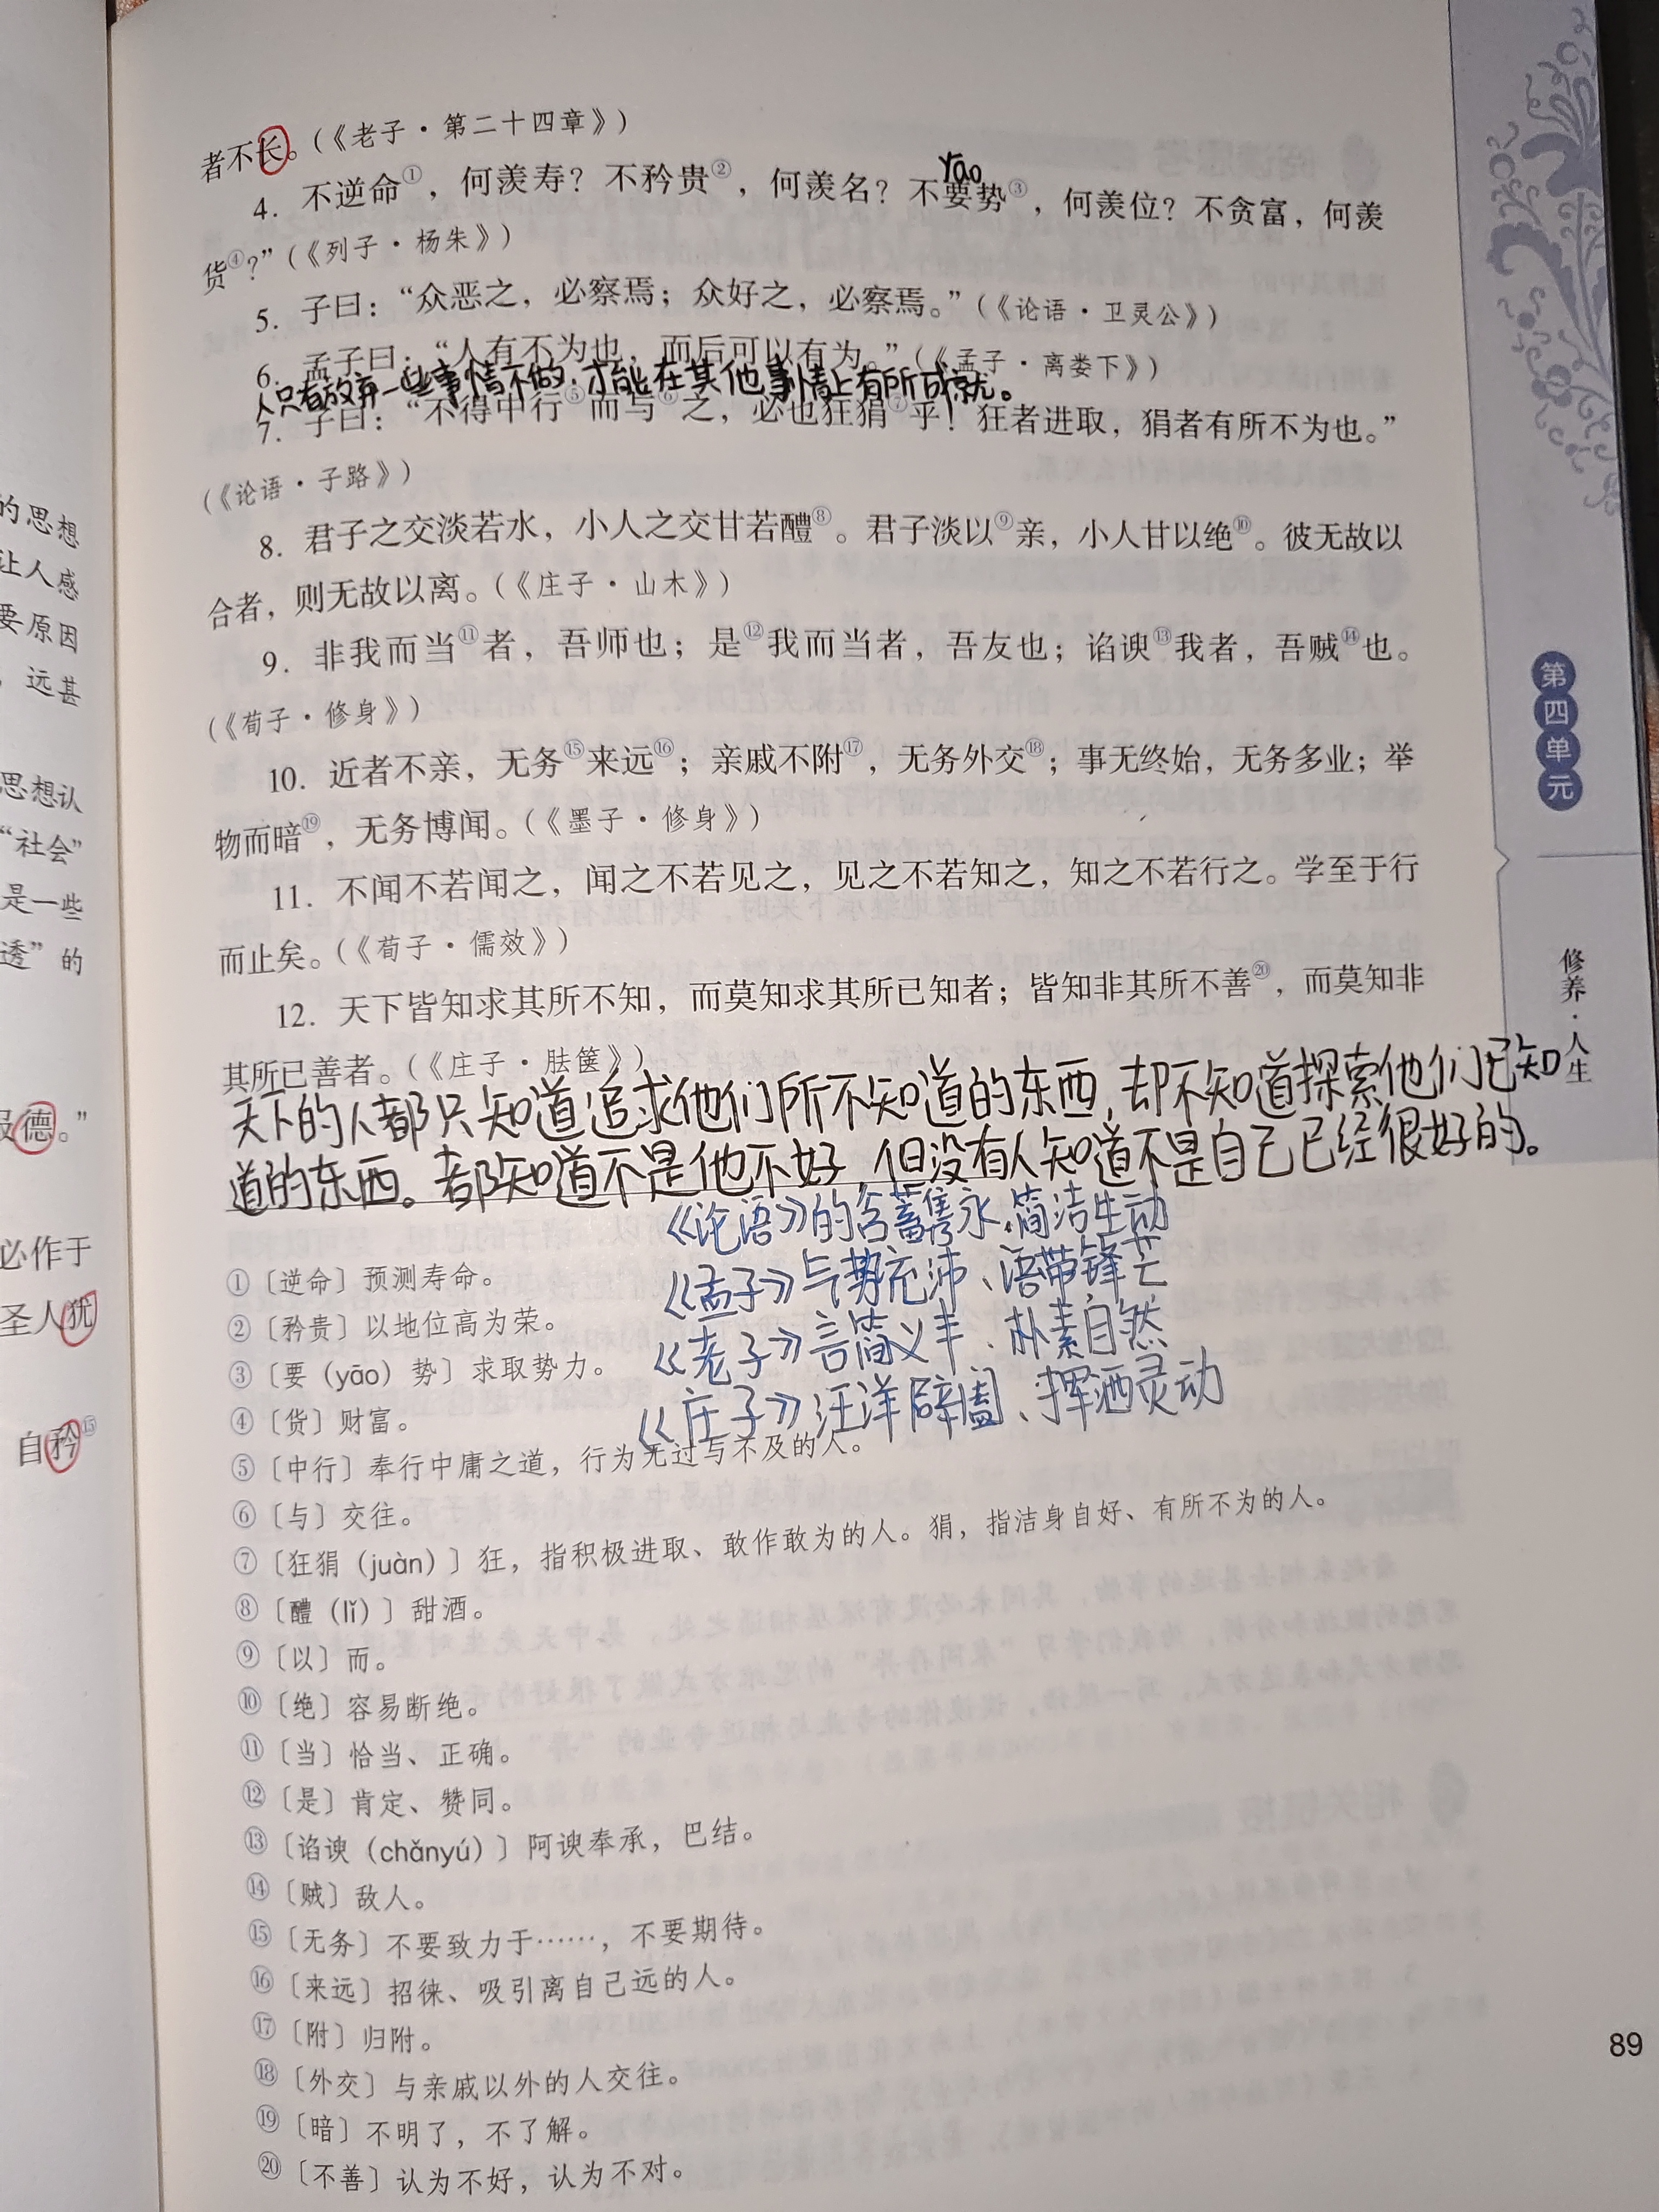 的思想
让人感
要原因
，远甚
思想认
“社会”
是一些
透”的
报德。”
必作于
圣人犹
自矜⑮
者不长。（《老子·第二十四章》）
4. 不逆命①，何羡寿？不矜贵②，何羡名？不要势③，何羡位？不贪富，何羡
yāo
货④？”（《列子·杨朱》）
5. 子曰：“众恶之，必察焉；众好之，必察焉。”（《论语·卫灵公》）
6. 孟子曰：“人有不为也，而后可以有为。”（《孟子·离娄下》）
人只有放弃一些事情不做，才能在其他事情上有所成就。
7. 子曰：“不得中行⑤而与⑥之，必也狂狷⑦乎！狂者进取，狷者有所不为也。”
（《论语·子路》）
8. 君子之交淡若水，小人之交甘若醴⑧。君子淡以⑨亲，小人甘以绝⑩。彼无故以
合者，则无故以离。（《庄子·山木》）
9. 非我而当⑪者，吾师也；是⑫我而当者，吾友也；谄谀⑬我者，吾贼⑭也。
（《荀子·修身》）
10. 近者不亲，无务⑮来远⑯；亲戚不附⑰，无务外交⑱；事无终始，无务多业；举
物而暗⑲，无务博闻。（《墨子·修身》）
11. 不闻不若闻之，闻之不若见之，见之不若知之，知之不若行之。学至于行
而止矣。（《荀子·儒效》）
12. 天下皆知求其所不知，而莫知求其所已知者；皆知非其所不善⑳，而莫知非
其所已善者。（《庄子·胠箧》）
天下的人都只知道追求他们所不知道的东西，却不知道探索他们已知
道的东西。都知道不是他不好，但没有人知道不是自己已经很好的。
《论语》的含蓄隽永、简洁生动
《孟子》气势充沛、语带锋芒
《老子》言简义丰、朴素自然
《庄子》汪洋辟阖、挥洒灵动
①〔逆命〕预测寿命。
②〔矜贵〕以地位高为荣。
③〔要（yāo）势〕求取势力。
④〔货〕财富。
⑤〔中行〕奉行中庸之道，行为无过与不及的人。
⑥〔与〕交往。
⑦〔狂狷（juàn）〕狂，指积极进取、敢作敢为的人。狷，指洁身自好、有所不为的人。
⑧〔醴（lǐ）〕甜酒。
⑨〔以〕而。
⑩〔绝〕容易断绝。
⑪〔当〕恰当、正确。
⑫〔是〕肯定、赞同。
⑬〔谄谀（chǎnyú）〕阿谀奉承，巴结。
⑭〔贼〕敌人。
⑮〔无务〕不要致力于……，不要期待。
⑯〔来远〕招徕、吸引离自己远的人。
⑰〔附〕归附。
⑱〔外交〕与亲戚以外的人交往。
⑲〔暗〕不明了，不了解。
⑳〔不善〕认为不好，认为不对。
第四单元
修养·人生
89